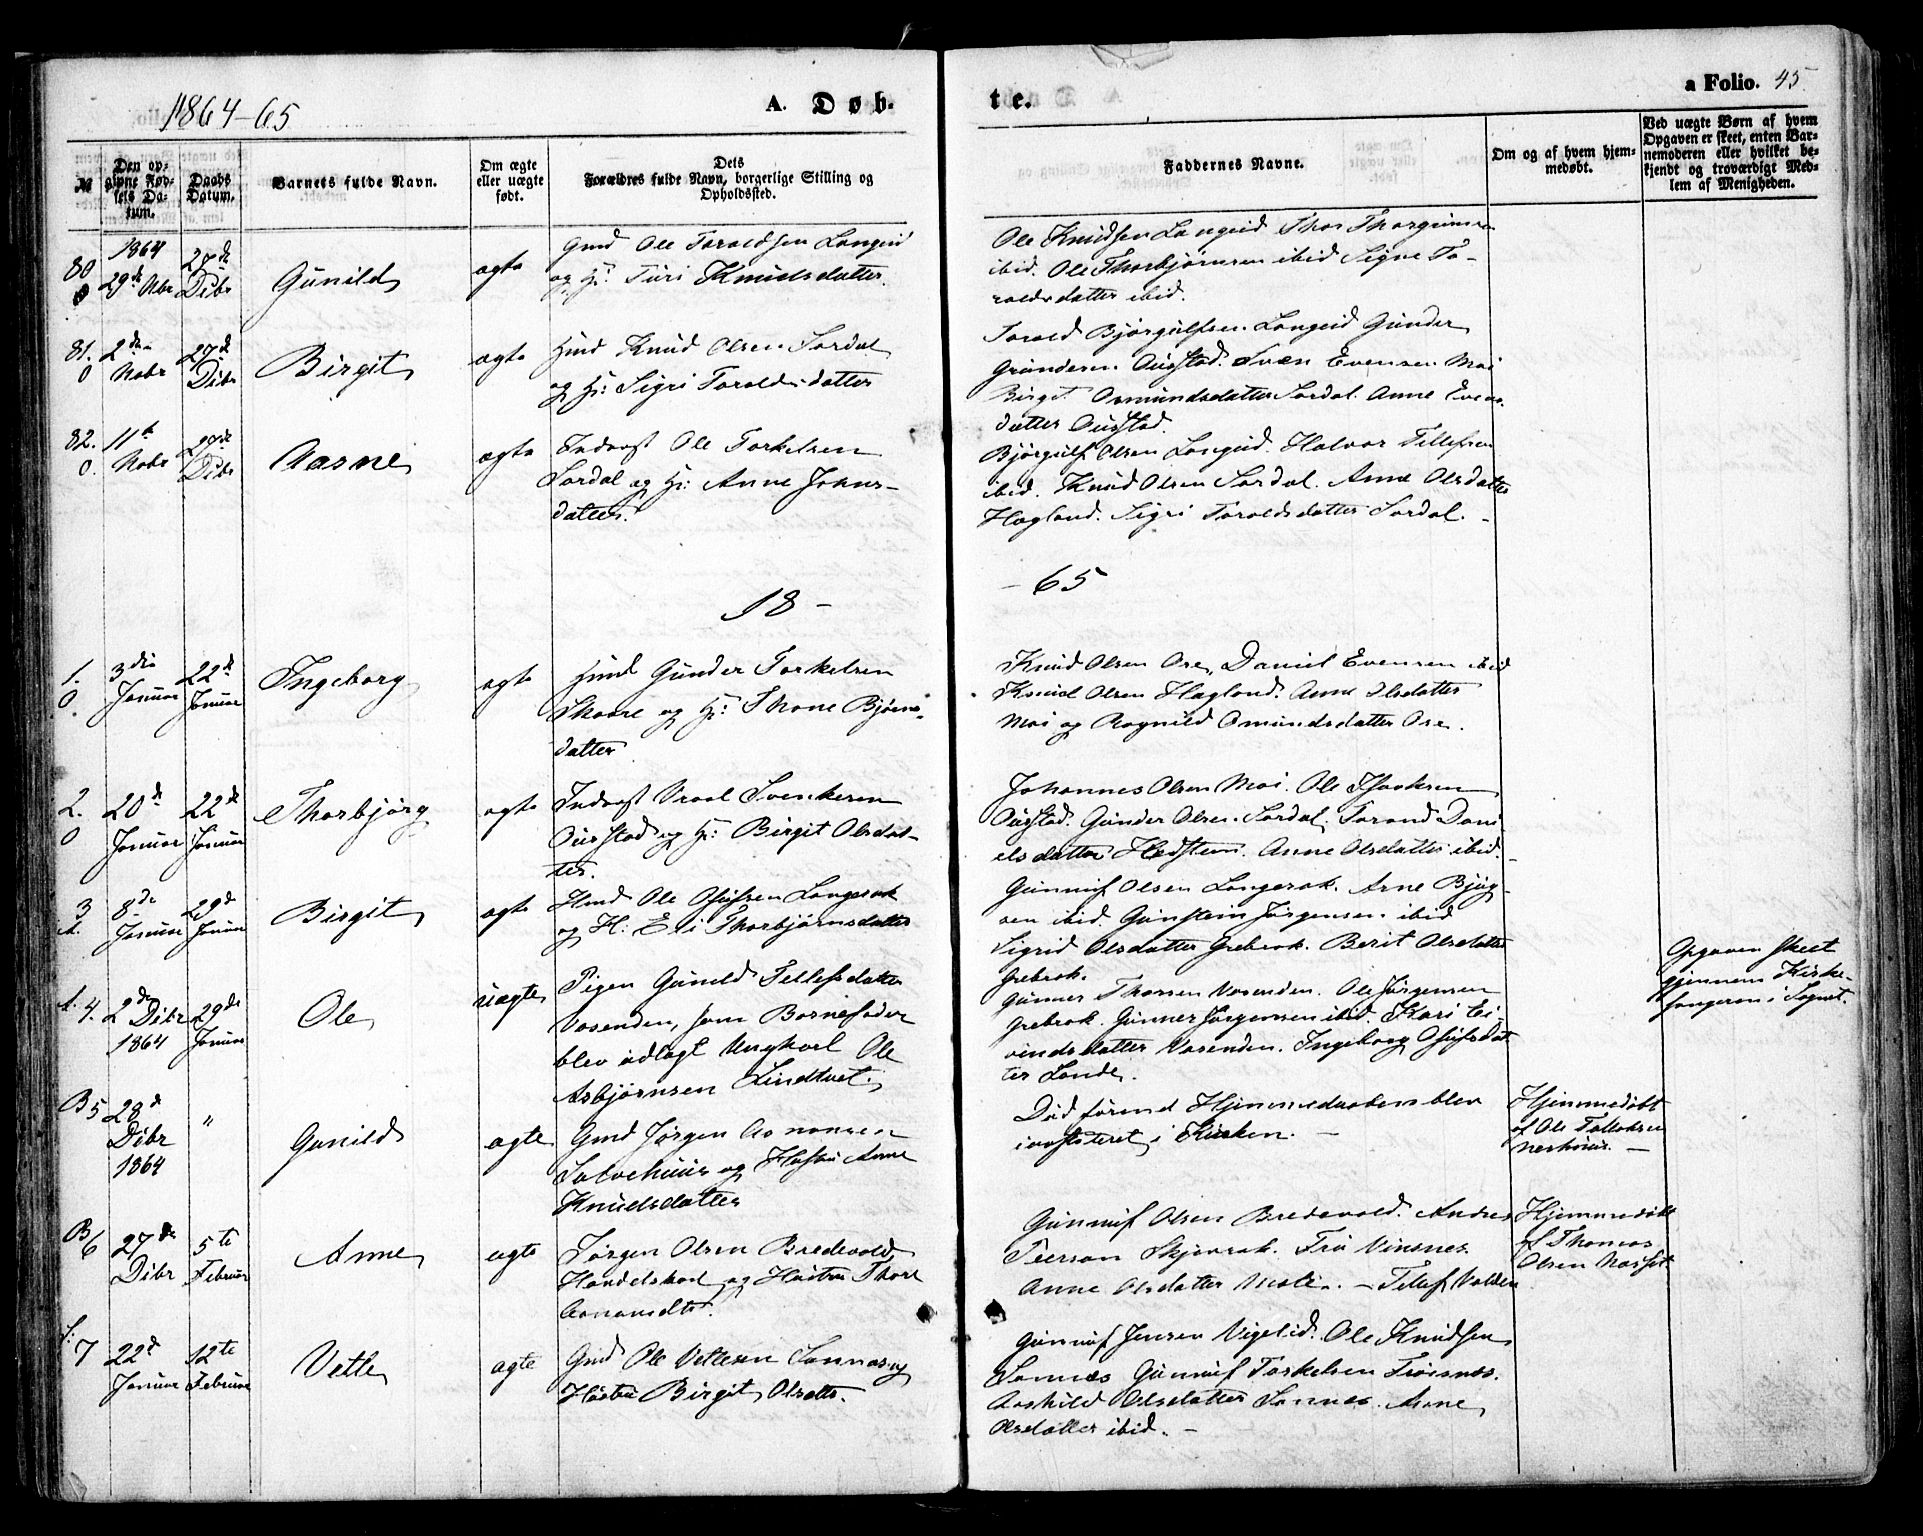 1864-65
A. Døb-
te.
a Folio. 45
№
Den op-
givne Fød-
sels Da-
tum.
Daabs
Datum.
Barnets fulde Navn.
Om ægte
eller uægte
født.
Dets
Forældres fulde Navn, borgerlige Stilling og
Opholdssted.
Faddernes Navne.
Om og af hvem hjem-
medøbt.
Ved uægte Børn af hvem
Opgaven er skeet, enten Bar-
nemoderen eller hvilket be-
kjendt og troværdigt Med-
lem af Menigheden.
80
0
1864
29de Nbr
27de
Dibr
Gunild
ægte
Gmd Ole Toroldsen Longeid
og H: Turi Knudsdatter.
Ole Knudsen Longeid Thor Thorgrimsen
ibid. Ole Thorbjørnsen ibid Signe To-
roldsdatter ibid.
81.
0
2den
Nobr
27de
Dibr
Birgit
ægte
Hmd Knud Olsen Sordal
og H: Sigri Toroldsdatter
Torold Bjørgulfsen Longeid Gunder
Gundersen Ousstad. Sven Evensen Moi
Birgit Osmundsdatter Sordal. Anne Evens-
datter Ousstad.
82.
0.
11te
Nobr
27de
Dibr
Aasne
ægte
Inderst Ole Torkelsen
Sordal og H: Anne Johns-
datter.
Bjørgulf Olsen Longeid. Halvor Tellefsen
ibid. Knud Olsen Sordal. Anne Olsdatter
Hagland. Sigri Toroldsdatter Sordal. -
18 -
- 65
1.
0
3die
Januar
22de
Januar
Ingeborg
ægte
Hmd Gunder Torkelsen
Skaare og H: Thone Bjørns-
datter
Knud Olsen Ose, Daniel Evensen ibid
Knud Olsen Hagland. Anne Olsdatter
Moi og Rognild Osmundsdatter Ose.
2.
0
20de
Januar
22de
Januar
Thorbjørg
ægte
Inderst Vraal Svenkesen
Ousstad og H: Birgit Olsdat-
ter.
Johannes Olsen Moi. Ole Isaaksen
Ousstad. Gunder Olsen Sordal, Torand Dani-
elsdatter Hedstem. Anne Olsdatter ibid.
3
A.
8de
Januar
29de
Januar
Birgit
ægte
Hmd Ole Osufsen Longerak
og H: Eli Thorbjørnsdatter
Gunnuf Olsen Longerak. Arne Bjug-
sen ibid. Gunstein Jørgensen ibid
Sigrid Olsdatter Grebrok. Berit Olsdatter
Grebrok.
A. 4.
2de Dibr
1864
29de
Januar
Ole
uægte
Pigen Gunild Tellefsdatter
Vasenden, som Barnefader
blev udlagt Ungkarl Ole
Asbjørnsen Lindtvet.
Gunner Thorsen Vasenden. Ole Jørgensen
Grebrok. Gunner Jørgensen ibid. Kari Ei-
vindsdatter Vasenden. Ingeborg Osufsdat-
ter Lande.
Opgaven skeet
gjennem Kirke-
sangeren i Sognet.
B 5
28de
Dibr
1864
"
Gunild
ægte
Gmd Jørgen Aanonsen
Salvehuus og Hustru Anne
Knudsdatter
Død førend Hjemmedaaben blev
istadfæstet i Kirken. -
Hjemmedøbt
af Ole Tallaksen
Neshuus. -
B
6
27de
Dibr
5te
Februar
Anne
ægte
Jørgen Olsen Bredevold,
Handelskarl og Hustru Thore
Aanonsdtr.
Gunnuf Olsen Bredevold. Andres
Peerson Skjevrak. Fru Vinsnes
Anne Olsdatter Moli. - Tellef Valden
Hjemmedøbt
af Thomas
Olsen Nosset
7
22de
Januar
12te
Februar
Vetle
ægte
Gmd Ole Vetlesen Sonnes og
Hustru Birgit Olsdtr.
Gunnuf Jensen Vigelid. Ole Knudsen
Sonnes Gunnuf Torkelsen Frøisnes.
Aashild Olsdatter Sonnes. Anne
Olsdatter ibid. -